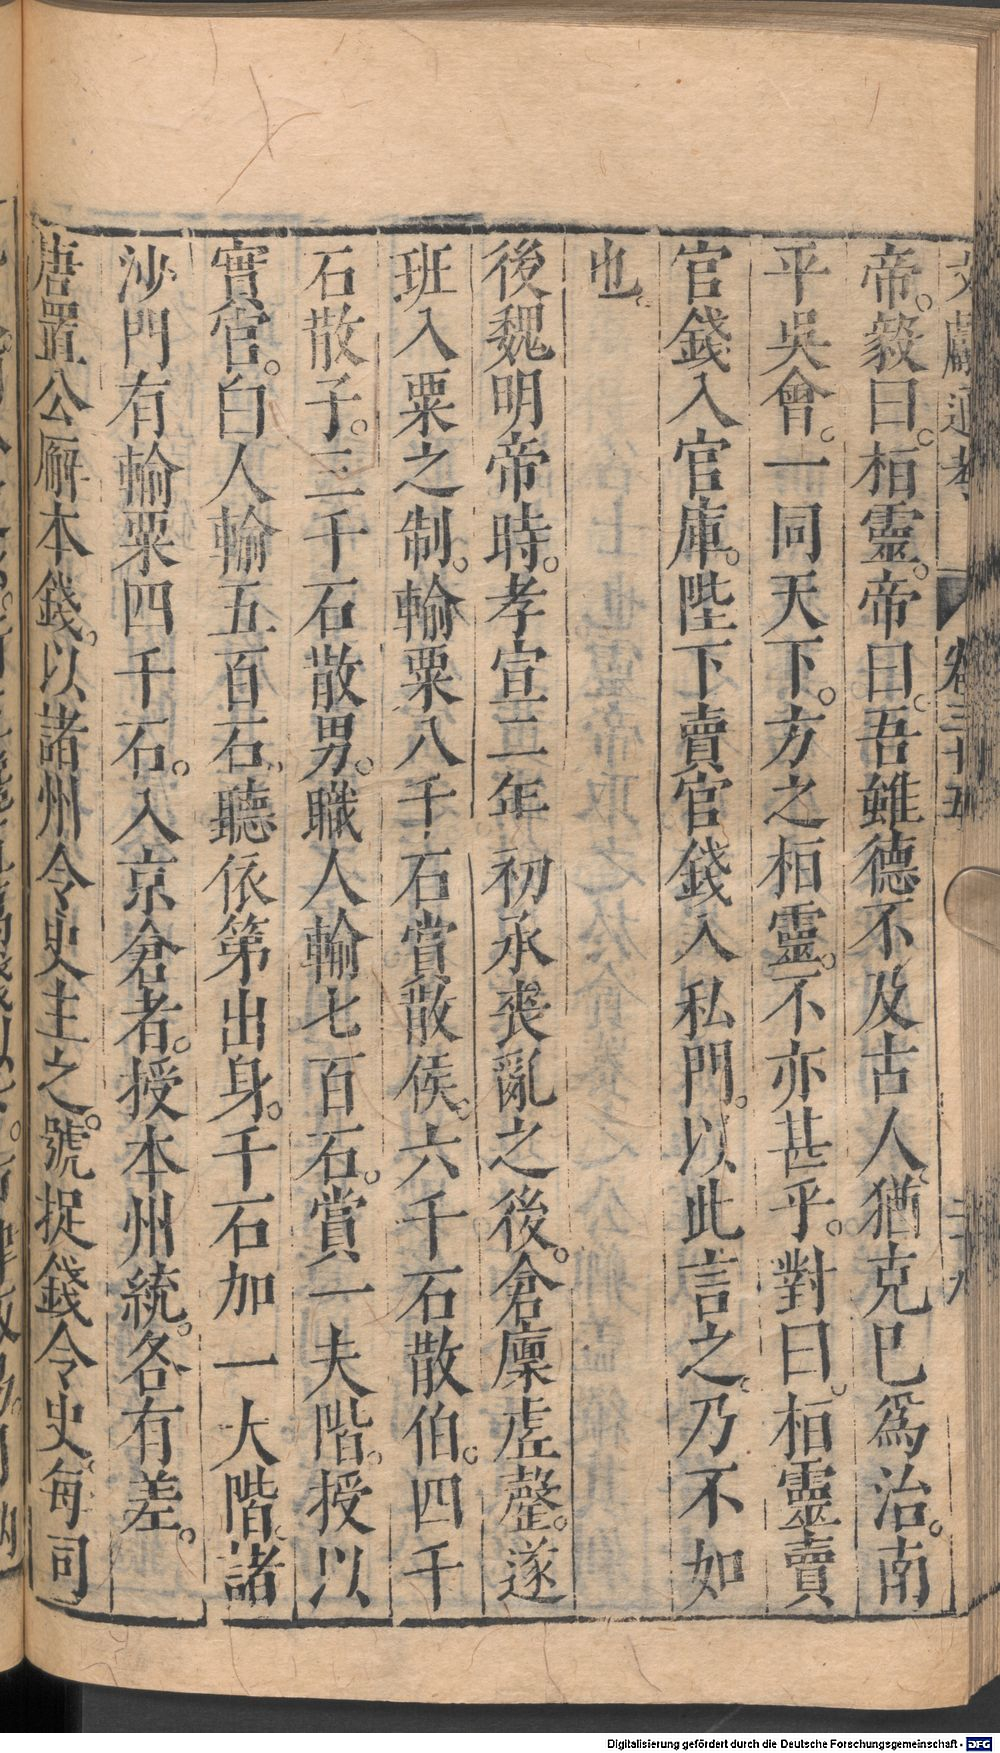 文獻通考 卷三十五 二十八
帝。毅曰。桓靈。帝曰。吾雖德不及古人。猶克己爲治。南
平吳會。一同天下。方之桓靈。不亦甚乎。對曰。桓靈賣
官錢入官庫。陛下賣官錢入私門。以此言之。乃不如
也。
後魏明帝時。孝宣二年 初承喪亂之後。倉廩虛罄。遂
班入粟之制。輸粟八千石賞散侯。六千石散伯。四千
石散子。三千石散男。職人輸七百石。賞一夫階。授以
實官。白人輸五百石。聽依第出身。千石加一大階。諸
沙門有輸粟四千石。入京倉者。授本州統。各有差。
唐置公廨本錢。以諸州令史主之。號捉錢令史。每司
Digitalisierung gefördert durch die Deutsche Forschungsgemeinschaft - DFG